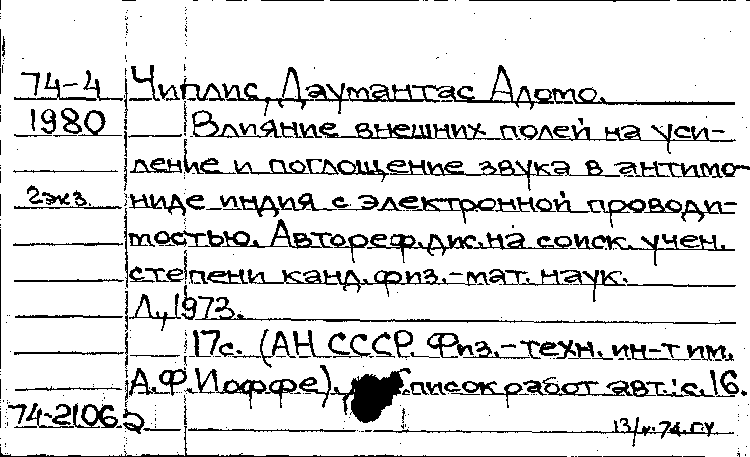 74-4 Чиплис, Даумантас Адомо.
1980 Влияние внешних полей на уси-
ление и поглощение звука в антимо-
2экз. ниде индия с электронной проводи-
мостью. Автореф. дис. на соиск. учен.
степени канд. физ.-мат. наук.
Л., 1973.
17с. (АН СССР. Физ.-техн. ин-т им.
А.Ф.Иоффе). Список работ авт.: с. 16.
74-21062
13/V-74. Г.У